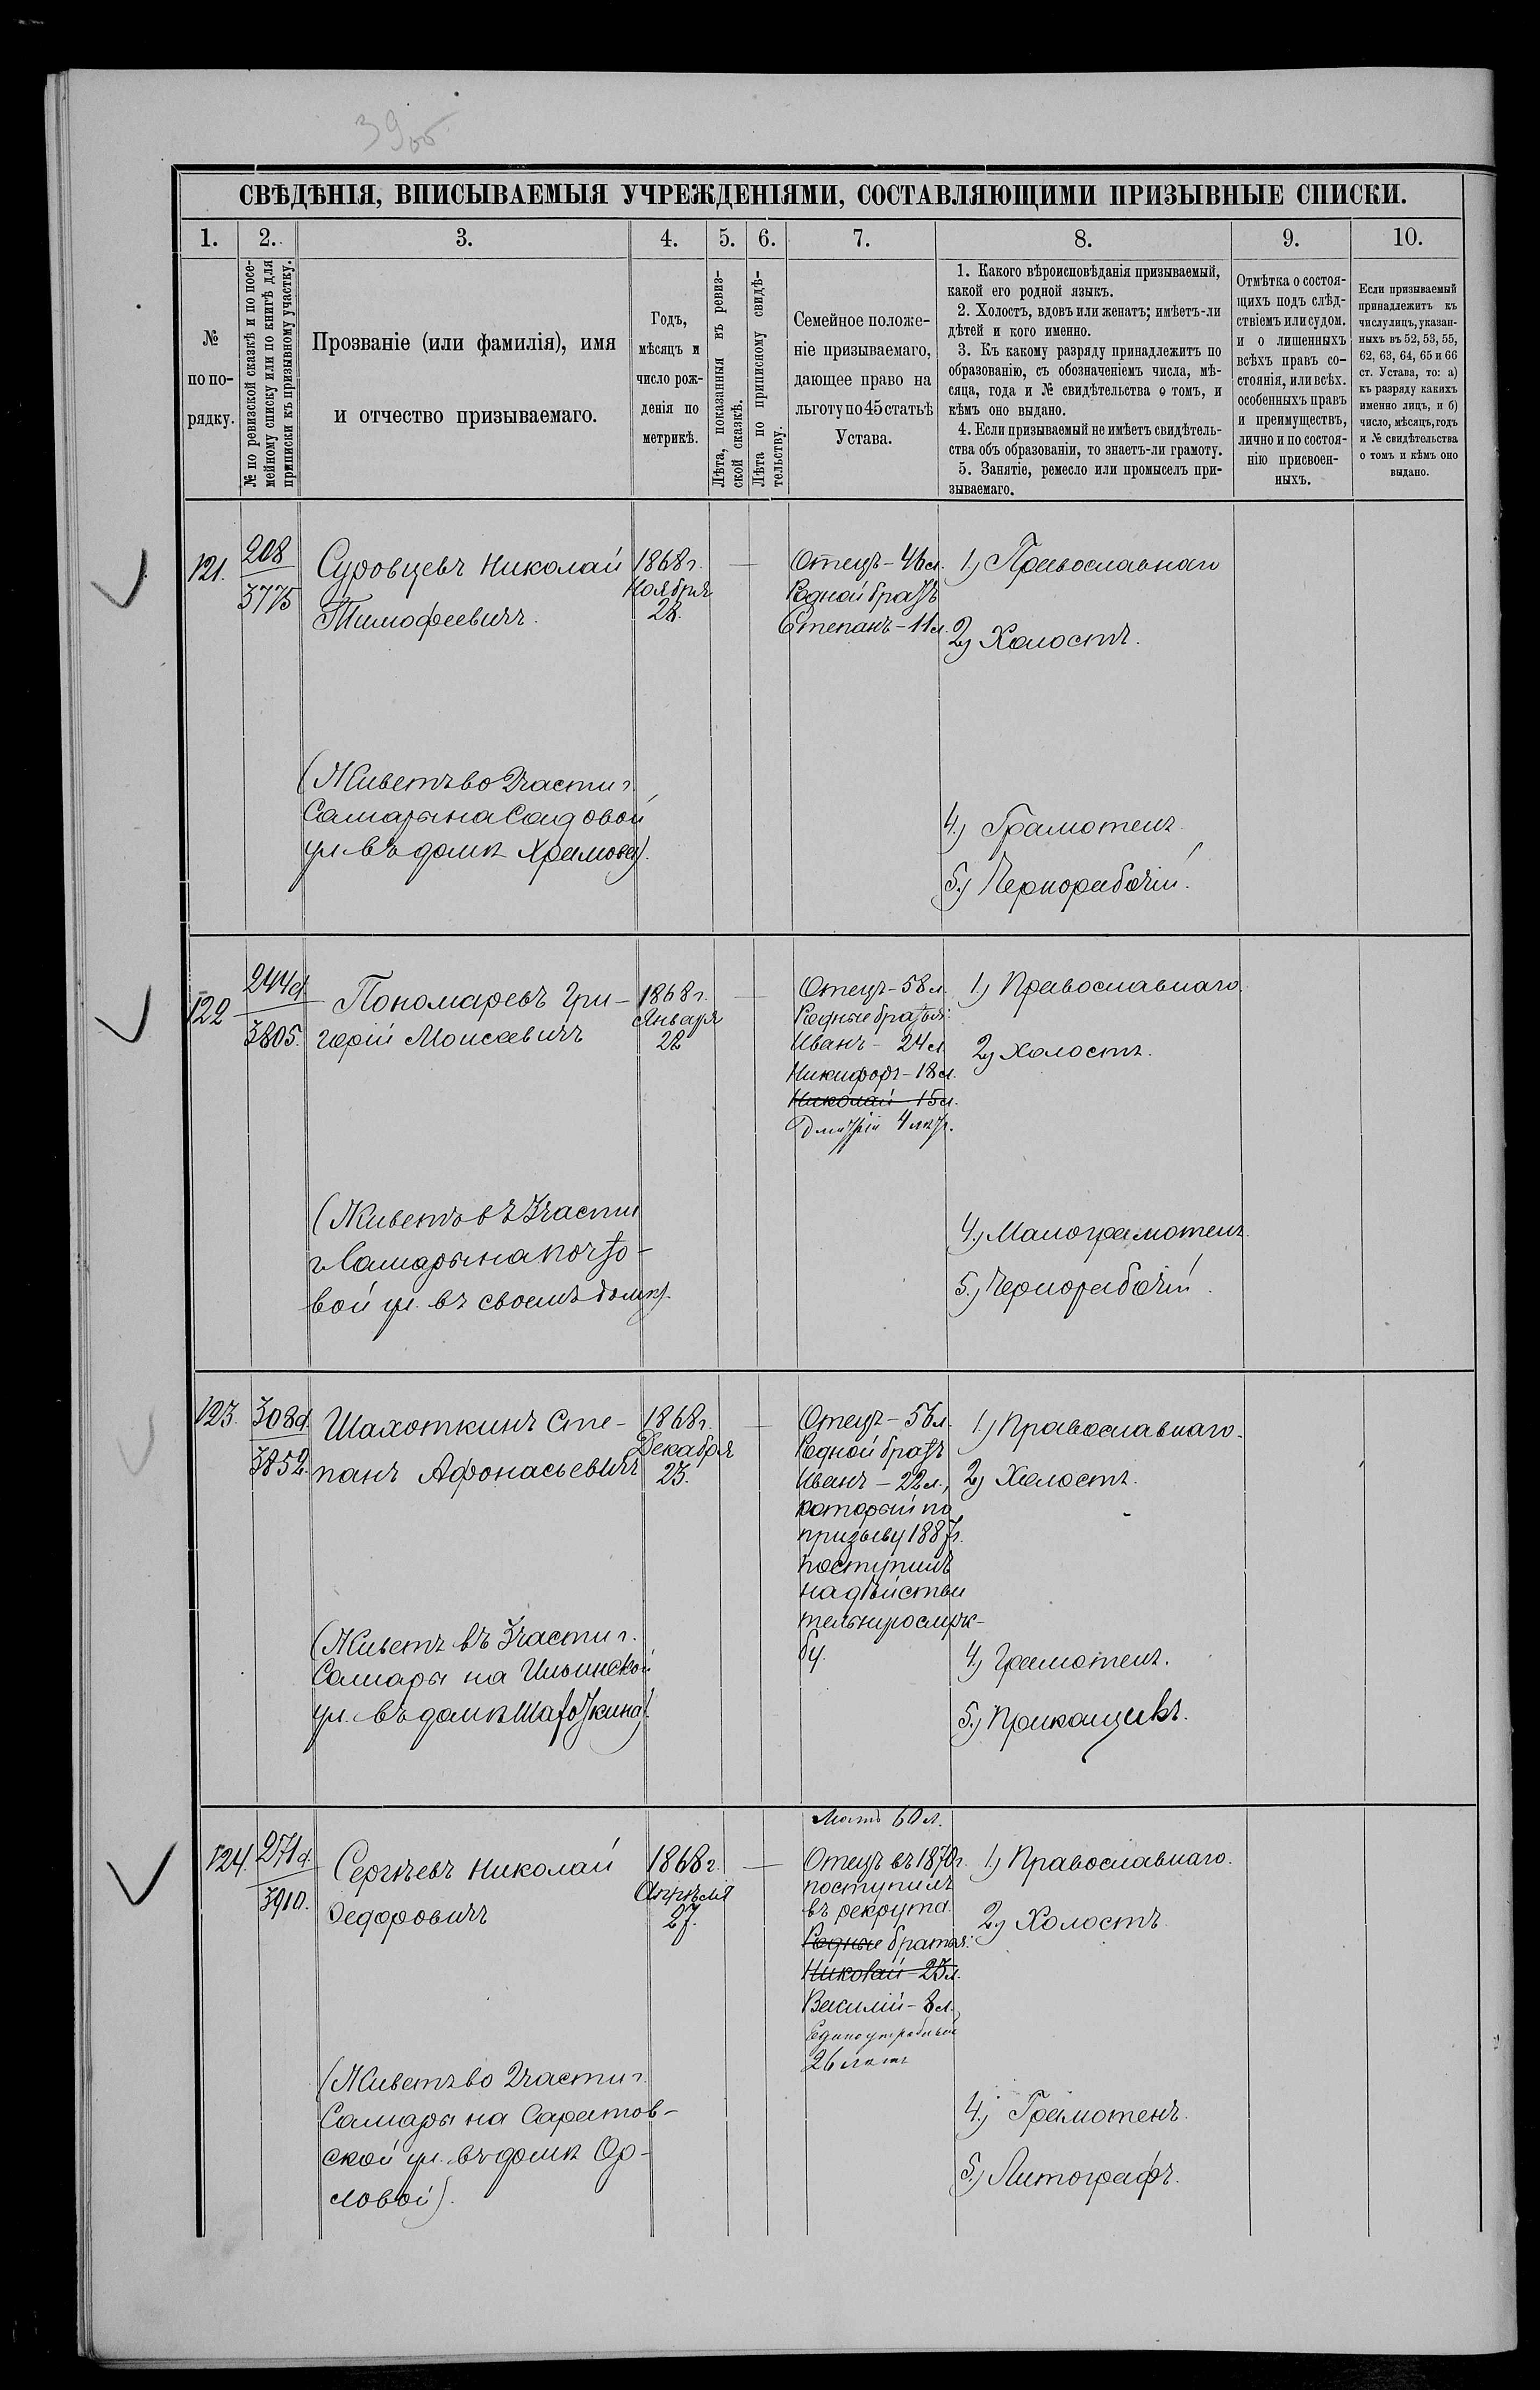 39об
СВѢДѢНІЯ, ВПИСЫВАЕМЫЯ УЧРЕЖДЕНІЯМИ, СОСТАВЛЯЮЩИМИ ПРИЗЫВНЫЕ СПИСКИ.
1. 2. 3. 4. 5. 6. 7. 8. 9. 10.
№
по по-
рядку.
№ по ревизской сказкѣ и по посе-
мейному списку или по книгѣ для
приписки къ призывному участку.
Прозваніе (или фамилія), имя
и отчество призываемаго.
Годъ,
мѣсяцъ и
число рож-
денія по
метрикѣ.
Лѣта, показанныя въ ревиз-
ской сказкѣ.
Лѣта по приписному свидѣ-
тельству.
Семейное положе-
ніе призываемаго,
дающее право на
льготу по 45 статьѣ
Устава.
1. Какого вѣроисповѣданія призываемый,
какой его родной языкъ.
2. Холостъ, вдовъ или женатъ; имѣетъ-ли
дѣтей и кого именно.
3. Къ какому разряду принадлежитъ по
образованію, съ обозначеніемъ числа, мѣ-
сяца, года и № свидѣтельства о томъ, и
кѣмъ оно выдано.
4. Если призываемый не имѣетъ свидѣтель-
ства объ образованіи, то знаетъ-ли грамоту.
5. Занятіе, ремесло или промыселъ при-
зываемаго.
Отмѣтка о состоя-
щихъ подъ слѣд-
ствіемъ или судом.
и о лишенныхъ
всѣхъ правъ со-
стоянія, или всѣх.
особенныхъ правъ
и преимуществъ,
лично и по состоя-
нію присвоен-
ныхъ.
Если призываемый
принадлежитъ къ
числу лицъ, указан-
ныхъ въ 52, 53, 55,
62, 63, 64, 65 и 66
ст. Устава, то: а)
къ разряду какихъ
именно лицъ, и б)
число, мѣсяцъ, годъ
и № свидѣтельства
о томъ и кѣмъ оно
выдано.
121.
208
3775
Суровцевъ Николай
Тимофеевичъ.
(Живетъ во 2 части г.
Самары на Садовой
ул. въ домѣ Храмова).
1868 г.
Ноября
28.
Отецъ - 46 л.
Родной братъ
Степанъ - 11 л.
1.) Православнаго
2.) Холостъ.
4.) Грамотенъ.
5.) Чернорабочій.
122
244 d.
3805.
Пономаревъ Гри-
горій Моисеевичъ
(Живетъ въ 3 части
г. Самары на Почто-
вой ул. въ своемъ домѣ).
1868 г.
Января
22
Отецъ - 58 л.
Родные братья:
Иванъ - 24 л.
Никифоръ - 18 л.
Николай - 15 л.
Дмитрій 4 лѣтъ.
1.) Православнаго.
2.) Холостъ.
4.) Малограмотенъ.
5.) Чернорабочій.
123.
308 d.
3852.
Шахоткинъ Сте-
панъ Афонасьевичъ
(Живетъ въ 3 части г.
Самары на Ильинской
ул. въ домѣ Шахоткина).
1868 г.
Декабря
23.
Отецъ - 56 л.
Родной братъ
Иванъ - 22 л.,
который по
призыву 1887 г.
поступилъ
на дѣйстви
тельную служ-
бу.
1.) Православнаго.
2.) Холостъ.
4.) Грамотенъ.
5.) Прикащикъ.
124.
271 d.
3910.
Сергѣевъ Николай
Федоровичъ
(Живетъ во 2 части г.
Самары на Саратов-
ской ул. въ домѣ Ор-
ловой).
1868 г.
Апрѣля
27.
Мать 60 л.
Отецъ въ 1870 г.
поступилъ
въ рекрута.
Родные братья:
Николай - 23 л.
Василій - 8 л.
Единоутробный
26 лѣтъ
1.) Православнаго.
2.) Холостъ.
4.) Грамотенъ.
5.) Литографъ.